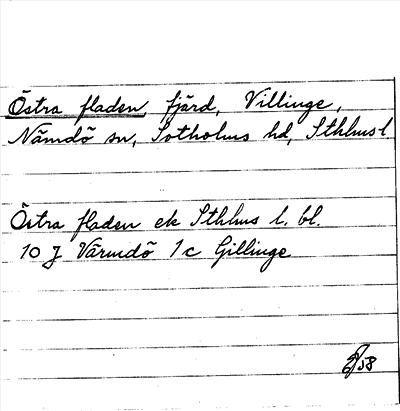 Östra fladen, fjärd, Villinge,
Nämdö sn, Sotholms hd, Sthlms l
Östra fladen ek Sthlms l. bl.
10 J Värmdö 1c Gillinge
58